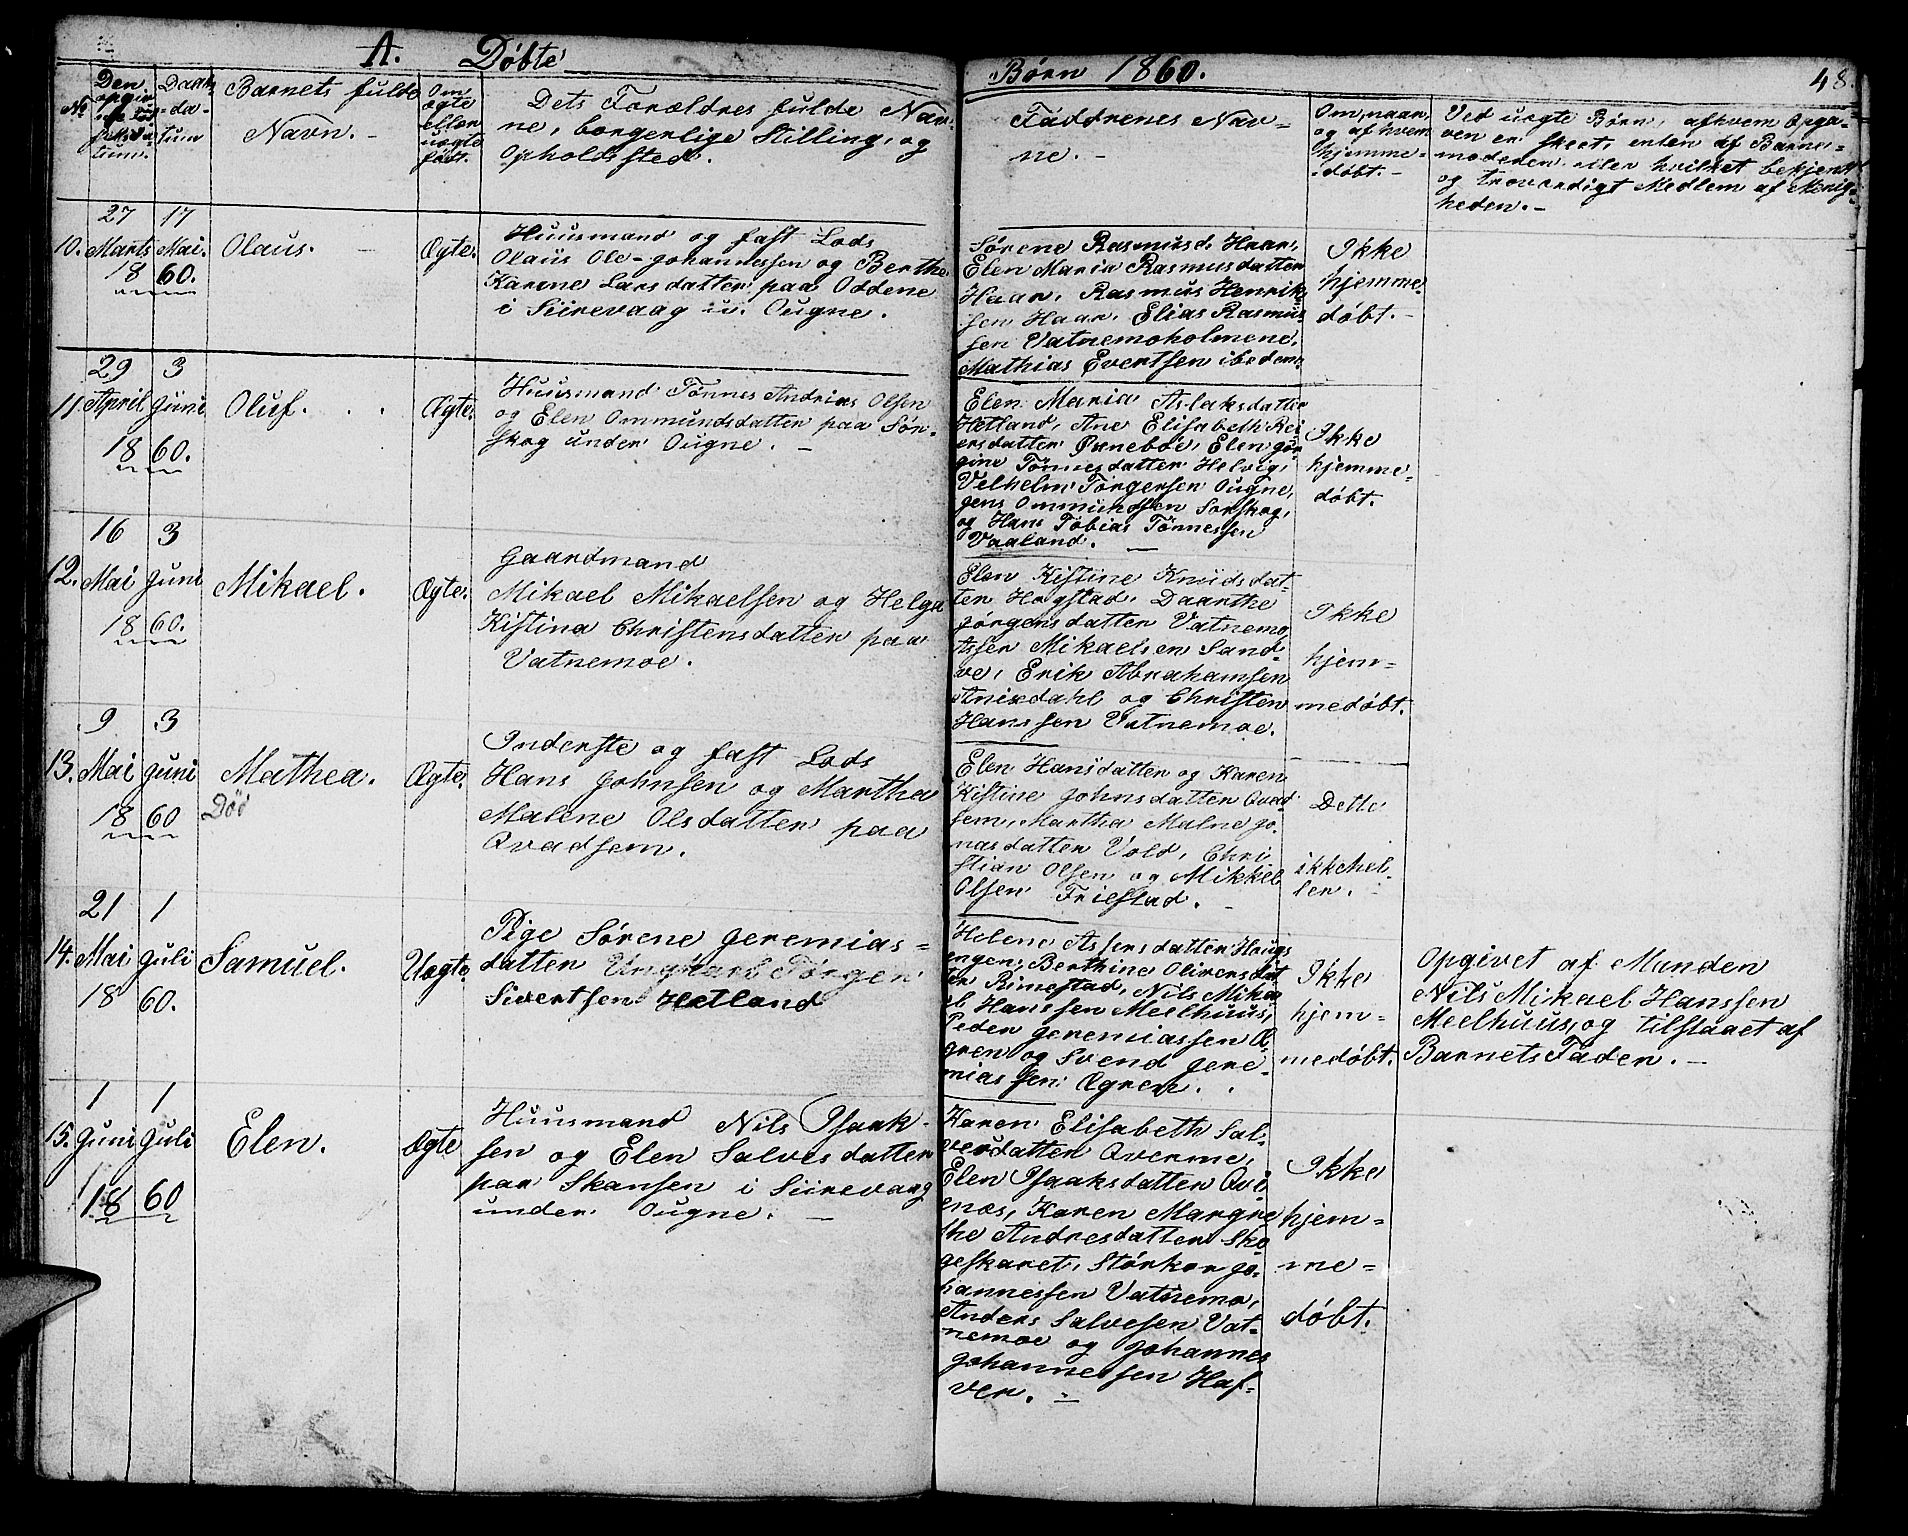 A. Døbte
Børn 1860.
48.
No
Daab
da-
tum
Barnets fulde
Navn. -
Om
ægte
eller
uægte
født.
Dets Forældres fulde Nav-
ne, borgerlige Stilling, og
Opholdssted.
Faddrenes Nav-
ne. -
Om, naar,
og af hvem
hjemme-
døbt. -
Ved uægte Børn, af hvem Opga-
ven er skeet, enten af Barne-
moderen eller hvilket bekjent
og troværdigt Medlem af Menig-
heden. -
27 17
10. Marts Mai.
18 60.
Olaus. -
Ægte.
Huusmand og fast Lods
Olaus Ole-Johannessen og Berthe
Karene Larsdatter paa Oddene
i Siirevaag u. Ougne.
Sørene Rasmusd. Haar,
Elen Maria Rasmusdatter
Haar, Rasmus Henrik-
sen Haar, Elias Rasmus
sen Vatnemoholmene,
Mathias Evertsen ibedem.
Ikke
hjemme-
døbt. -
29 3
11. April Juni
18 60.
Oluf. . .
Ægte.
Huusmand Tønnes Andrias Olsen
og Elen Ommundsdatter paa Sør-
skog under Ougne. -
Elen Maria Aslaksdatter
Hetland, Ane Elisabeth Rei
ersdatter Øxnebøe, Elen Jør
gine Tønnesdatter Helvig,
Velhelm Torgersen Ougne,
Jens Ommundsen Sørskog,
og Hans Tobias Tønnessen
Vaaland. -
Ikke
hjemme-
døbt.
16 3
12. Mai Juni
18 60.
Mikael.
Ægte.
Gaardmand
Mikael Mikaelsen og Helga
Kistina Christensdatter paa
Vatnemoe.
Elen Kistine Knudsdat-
ter Hogstad, Daarthe
Jørgensdatter Vatnemo,
Asser Mikaelsen Sand-
ve, Erik Abrahamsen
Anixdahl og Christen
Hanssen Vatnemoe.
Ikke
hjem-
medøbt.
9 3
13. Mai Juni
18 60
Mathea.
Død
Ægte.
Inderste og fast Lods
Hans Johnsen og Martha
Malene Olsdatter paa
Qvadsem.
Elen Hansdatter og Karen
Kistine Johnsdatter Qvad
sem, Martha Malne Jo-
nasdatter Vold, Chri
stian Olsen og Mikkel
Olsen Friestad. -
Dette
ikke hel-
ler.
21 1
14. Mai Juli
18 60.
Samuel.
Uægte.
Pige Sørene Jeremias-
datter Ungkarl Torger
Sivertsen Hetland
Helene Assersdatter Haugs
engen, Berthine Oliversdat
ter Rimestad, Nils Mika
el Hanssen Meelhuus,
Peder Jeremiassen Æ-
gren og Svend Jere-
miassen Ægren. .
Ikke
hjem-
medøbt.
Opgivet af Manden
Nils Mikael Hanssen
Meelhuus, og tilstaaet af
Barnets Fader. -
1 1
15. Juni Juli
18 60
Elen.
Ægte
Huusmand Nils Isaak-
sen og Elen Salvesdatter
paa Skansen i Siirevaag
under Ougne. -
Karen Elisabeth Sal-
vesdatter Qverme,
Elen Isaaksdatter Qvi
enæs, Karen Margre
the Andresdatter Sko
geskaret, Størker Jo-
hannessen Vatnemo,
Anders Salvesen Vat-
nemoe og Johannes
Johannessen Haf-
ver. -
Ikke
hjem-
me-
døbt.